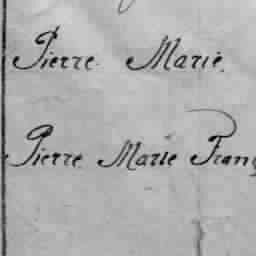 Pierre Marie.
Pierre Marie Franç